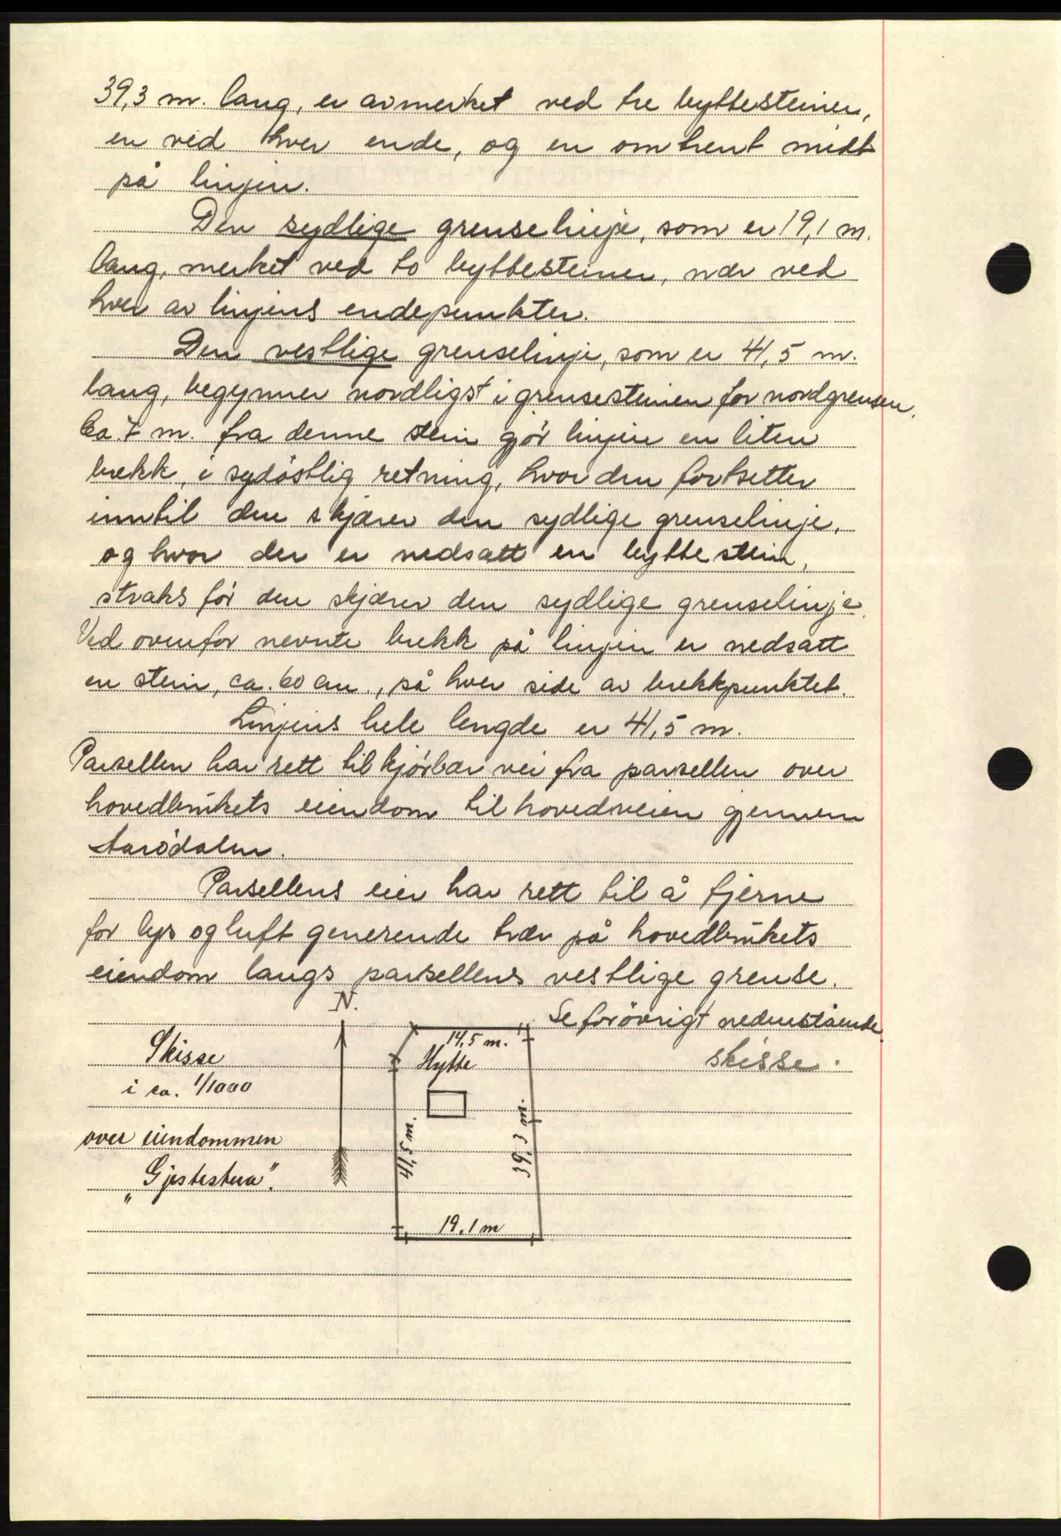 39,3 m. lang, er avmerket ved tre byttesteiner,
en ved hver ende, og en omtrent midt
på linjen.
Den sydlige grenselinje, som er 19,1 m.
lang, merket ved to byttesteiner, nær ved
hver av linjens endepunkter.
Den vestlige grenselinje, som er 41,5 m.
lang, begynner nordligst i grensesteinen for nordgrensen.
Ca. 7 m. fra denne stein gjör linjen en liten
brekk, i sydöstlig retning, hvor den fortsetter
inntil den skjærer den sydlige grenselinje,
og hvor der er nedsatt en byttestein,
straks för den skjærer den sydlige grenselinje.
Ved ovenfor nevnte brekk på linjen er nedsatt
en stein, ca. 60 cm., på hver side av brekkpunktet.
Linjens hele lengde er 41,5 m.
Parsellen har rett til kjörbar vei fra parsellen over
hovedbrukets eiendom til hovedveien gjennem
Aarödalen.
Parsellens eier har rett til å fjerne
for lys og luft generende trær på hovedbrukets
eiendom langs parsellens vestlige grense.
Se forövrigt nedenstående
skisse.
N.
Skisse
i ca. 1/1000
over eiendommen
„Gjestestua".
14,5 m.
Hytte
41,5 m.
39,3 m.
19,1 m